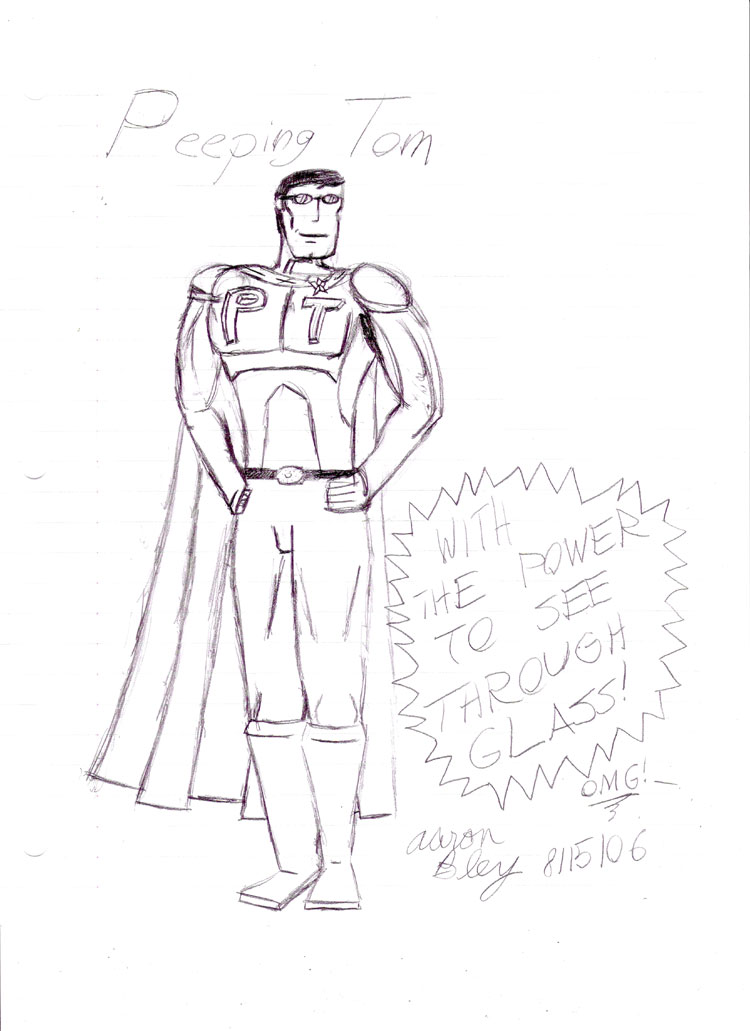 Peeping Tom
P T
WITH
THE POWER
TO SEE
THROUGH
GLASS!
OMG!
aaron
Bley 8/15/06